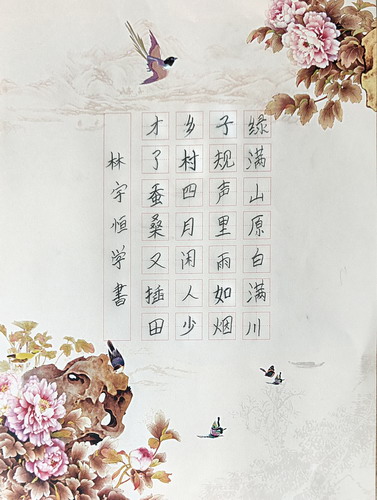 绿满山原白满川
子规声里雨如烟
乡村四月闲人少
才了蚕桑又插田
林宇恒学書